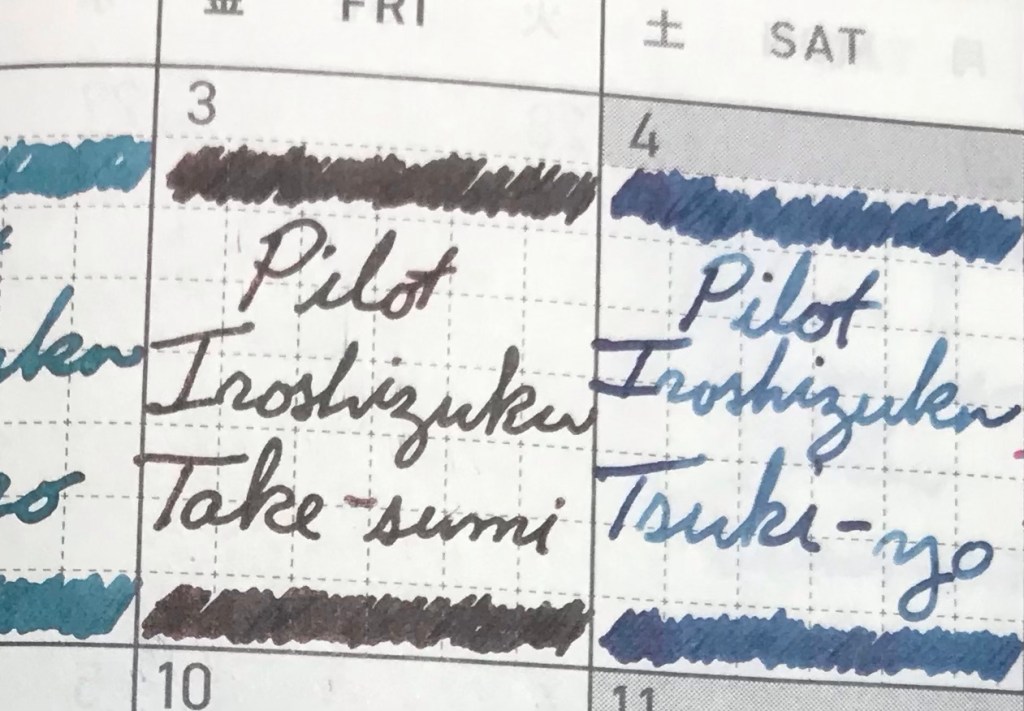 金 FRI
土 SAT
3
Pilot
Iroshizuku
Take-sumi
4
Pilot
Iroshizuku
Tsuki-yo
10
11